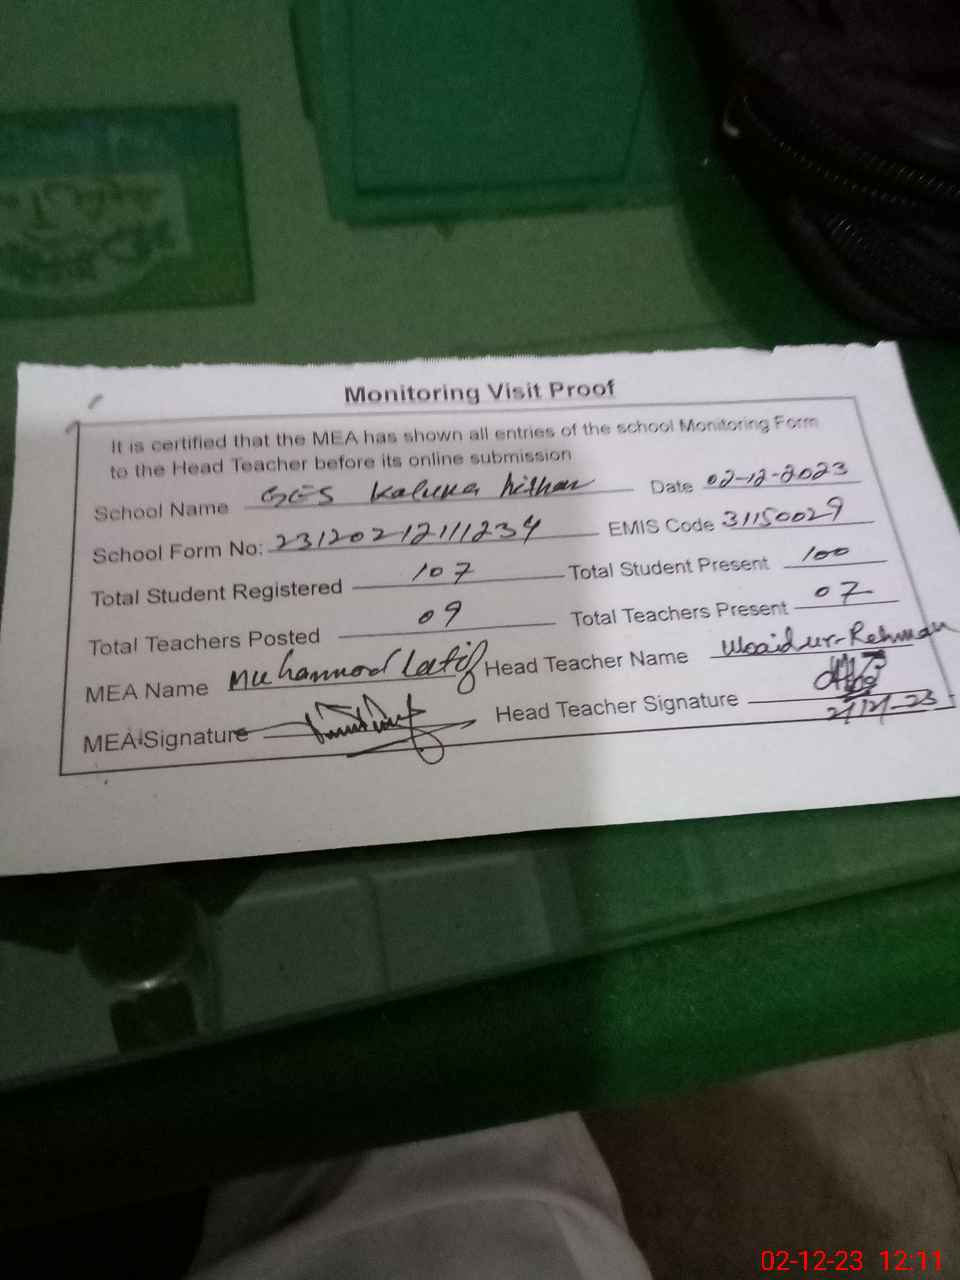 Monitoring Visit Proof
It is certified that the MEA has shown all entries of the school Monitoring Form
to the Head Teacher before its online submission
School Name GES Date 02-12-2023
School Form No: 23120212111234 EMIS Code 31150029
Total Student Registered 107 Total Student Present 100
Total Teachers Posted 09 Total Teachers Present 07
MEA Name Muhammad Latif Head Teacher Name Ubaid ur-Rehman
MEA Signature Head Teacher Signature
2/12/-23
02-12-23 12:11